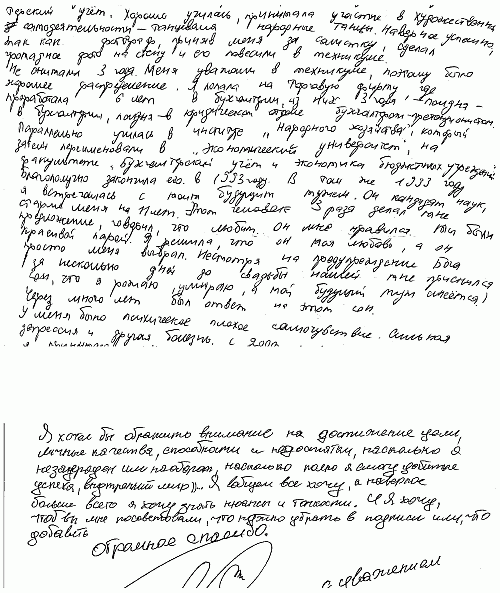 терский учёт. Хорошо училась, принимала участие в художественной
самодеятельности - танцевала народные танцы. Наверное успешно,
так как фотограф, приняв меня за солистку, сделал
фото на стену и его повесили в техникуме.
Не считали 3 года. Меня уважали в техникуме, поэтому было
хорошее распределение. Я попала на торговую фирму, где
проработала 6 лет в бухгалтерии, из них 3 года -
в бухгалтерии, в юридическом отделе бухгалтером-претензионистом.
Параллельно училась в институте "Народного хозяйства", который
затем переименовали в "Экономический университет", на
факультете "Бухгалтерский учёт и экономика бюджетных учреждений"
благополучно закончила его в 1999 году. В том же 1999 году
я встречалась с моим будущим мужем. Он кандидат наук,
старше меня на 11 лет. Этот человек 3 раза делал мне
предложение, говорил, что любит. Он мне нравился. Мы были
красивой парой. Я решила, что он моя любовь, а он
просто меня выбрал. Несмотря на предупреждение Бога
(за несколько дней до свадьбы нашей мне приснился
сон, что я рожаю, умираю, а мой будущий муж смеётся.)
Через много лет был ответ на этот сон.
У меня было психическое плохое самочувствие. Сильная
депрессия и другая болезнь. С
Я хотел бы обратить внимание на достижение цели,
личные качества, способности и недостатки, насколько я
незауряден или наоборот, насколько полно я смогу добиться
успеха, внутренний мир))... Я вобщем все хочу, а наверное
больше всего я хочу узнать нюансы и тонкости. И я хочу,
чтоб вы мне посоветовали, что нужно убрать в подписи или, что
добавить
Огромное спасибо.
с уважением